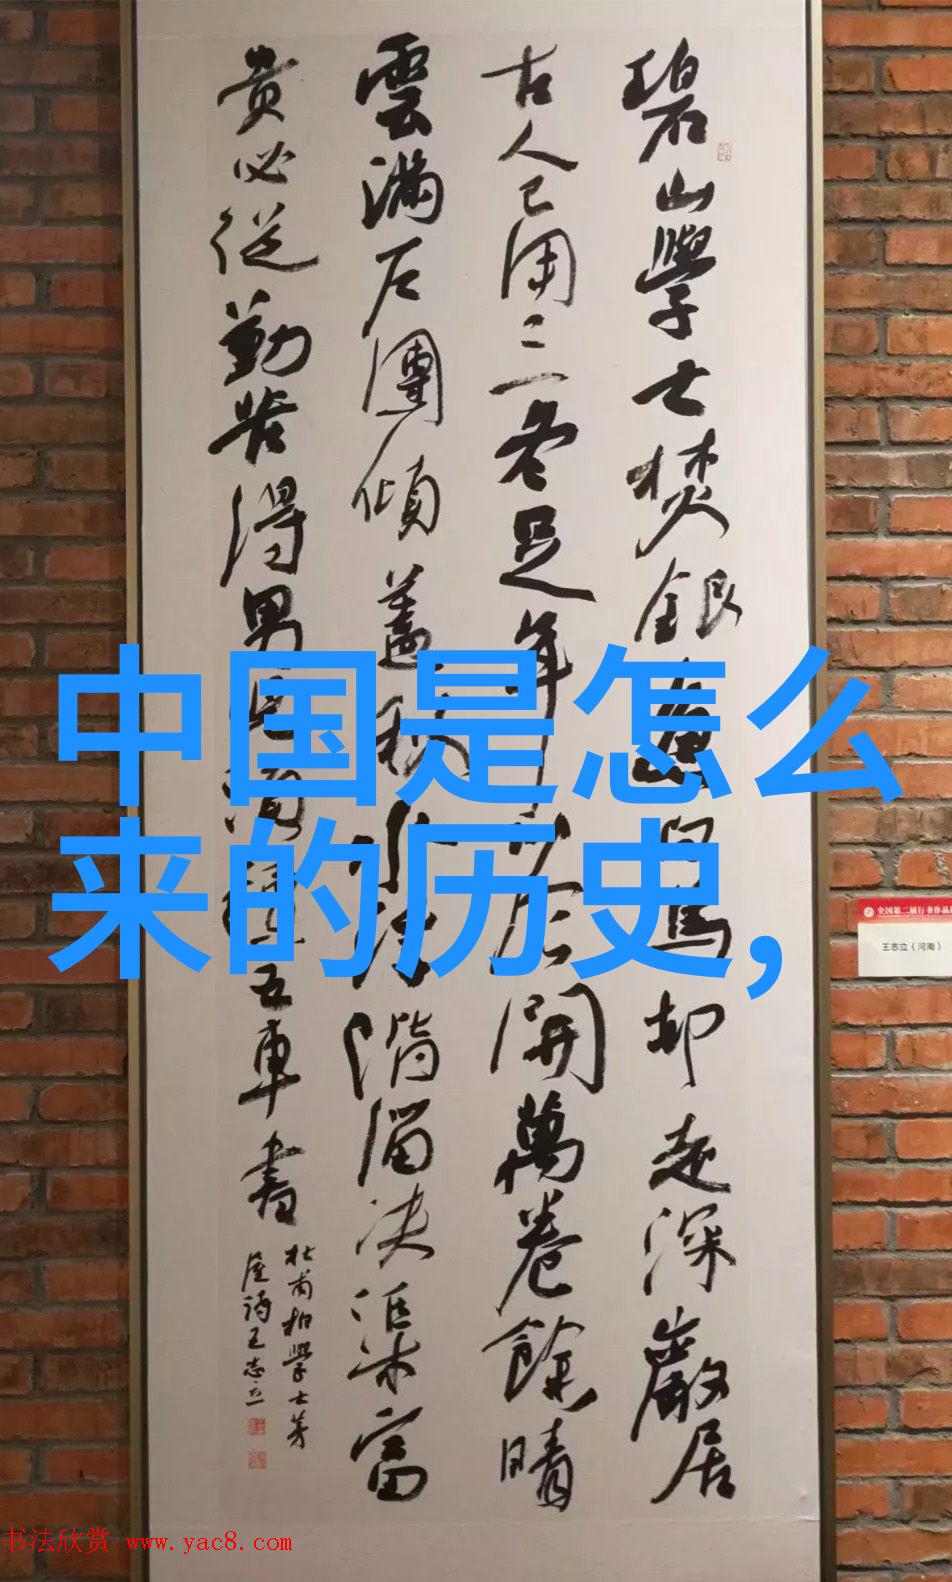 碧山學士焚銀魚白馬却走深巖居
古人已用三冬足年少今開萬卷餘晴
雲滿戶團傾蓋秋水浮階溜决渠富
貴必從勤苦得男兒須讀五車書
杜甫柏學士茅
屋詩王志立
中国是怎么
来的历史,
全国第二届行书作品
王志立(河南)
书法欣赏 www.yac8.com